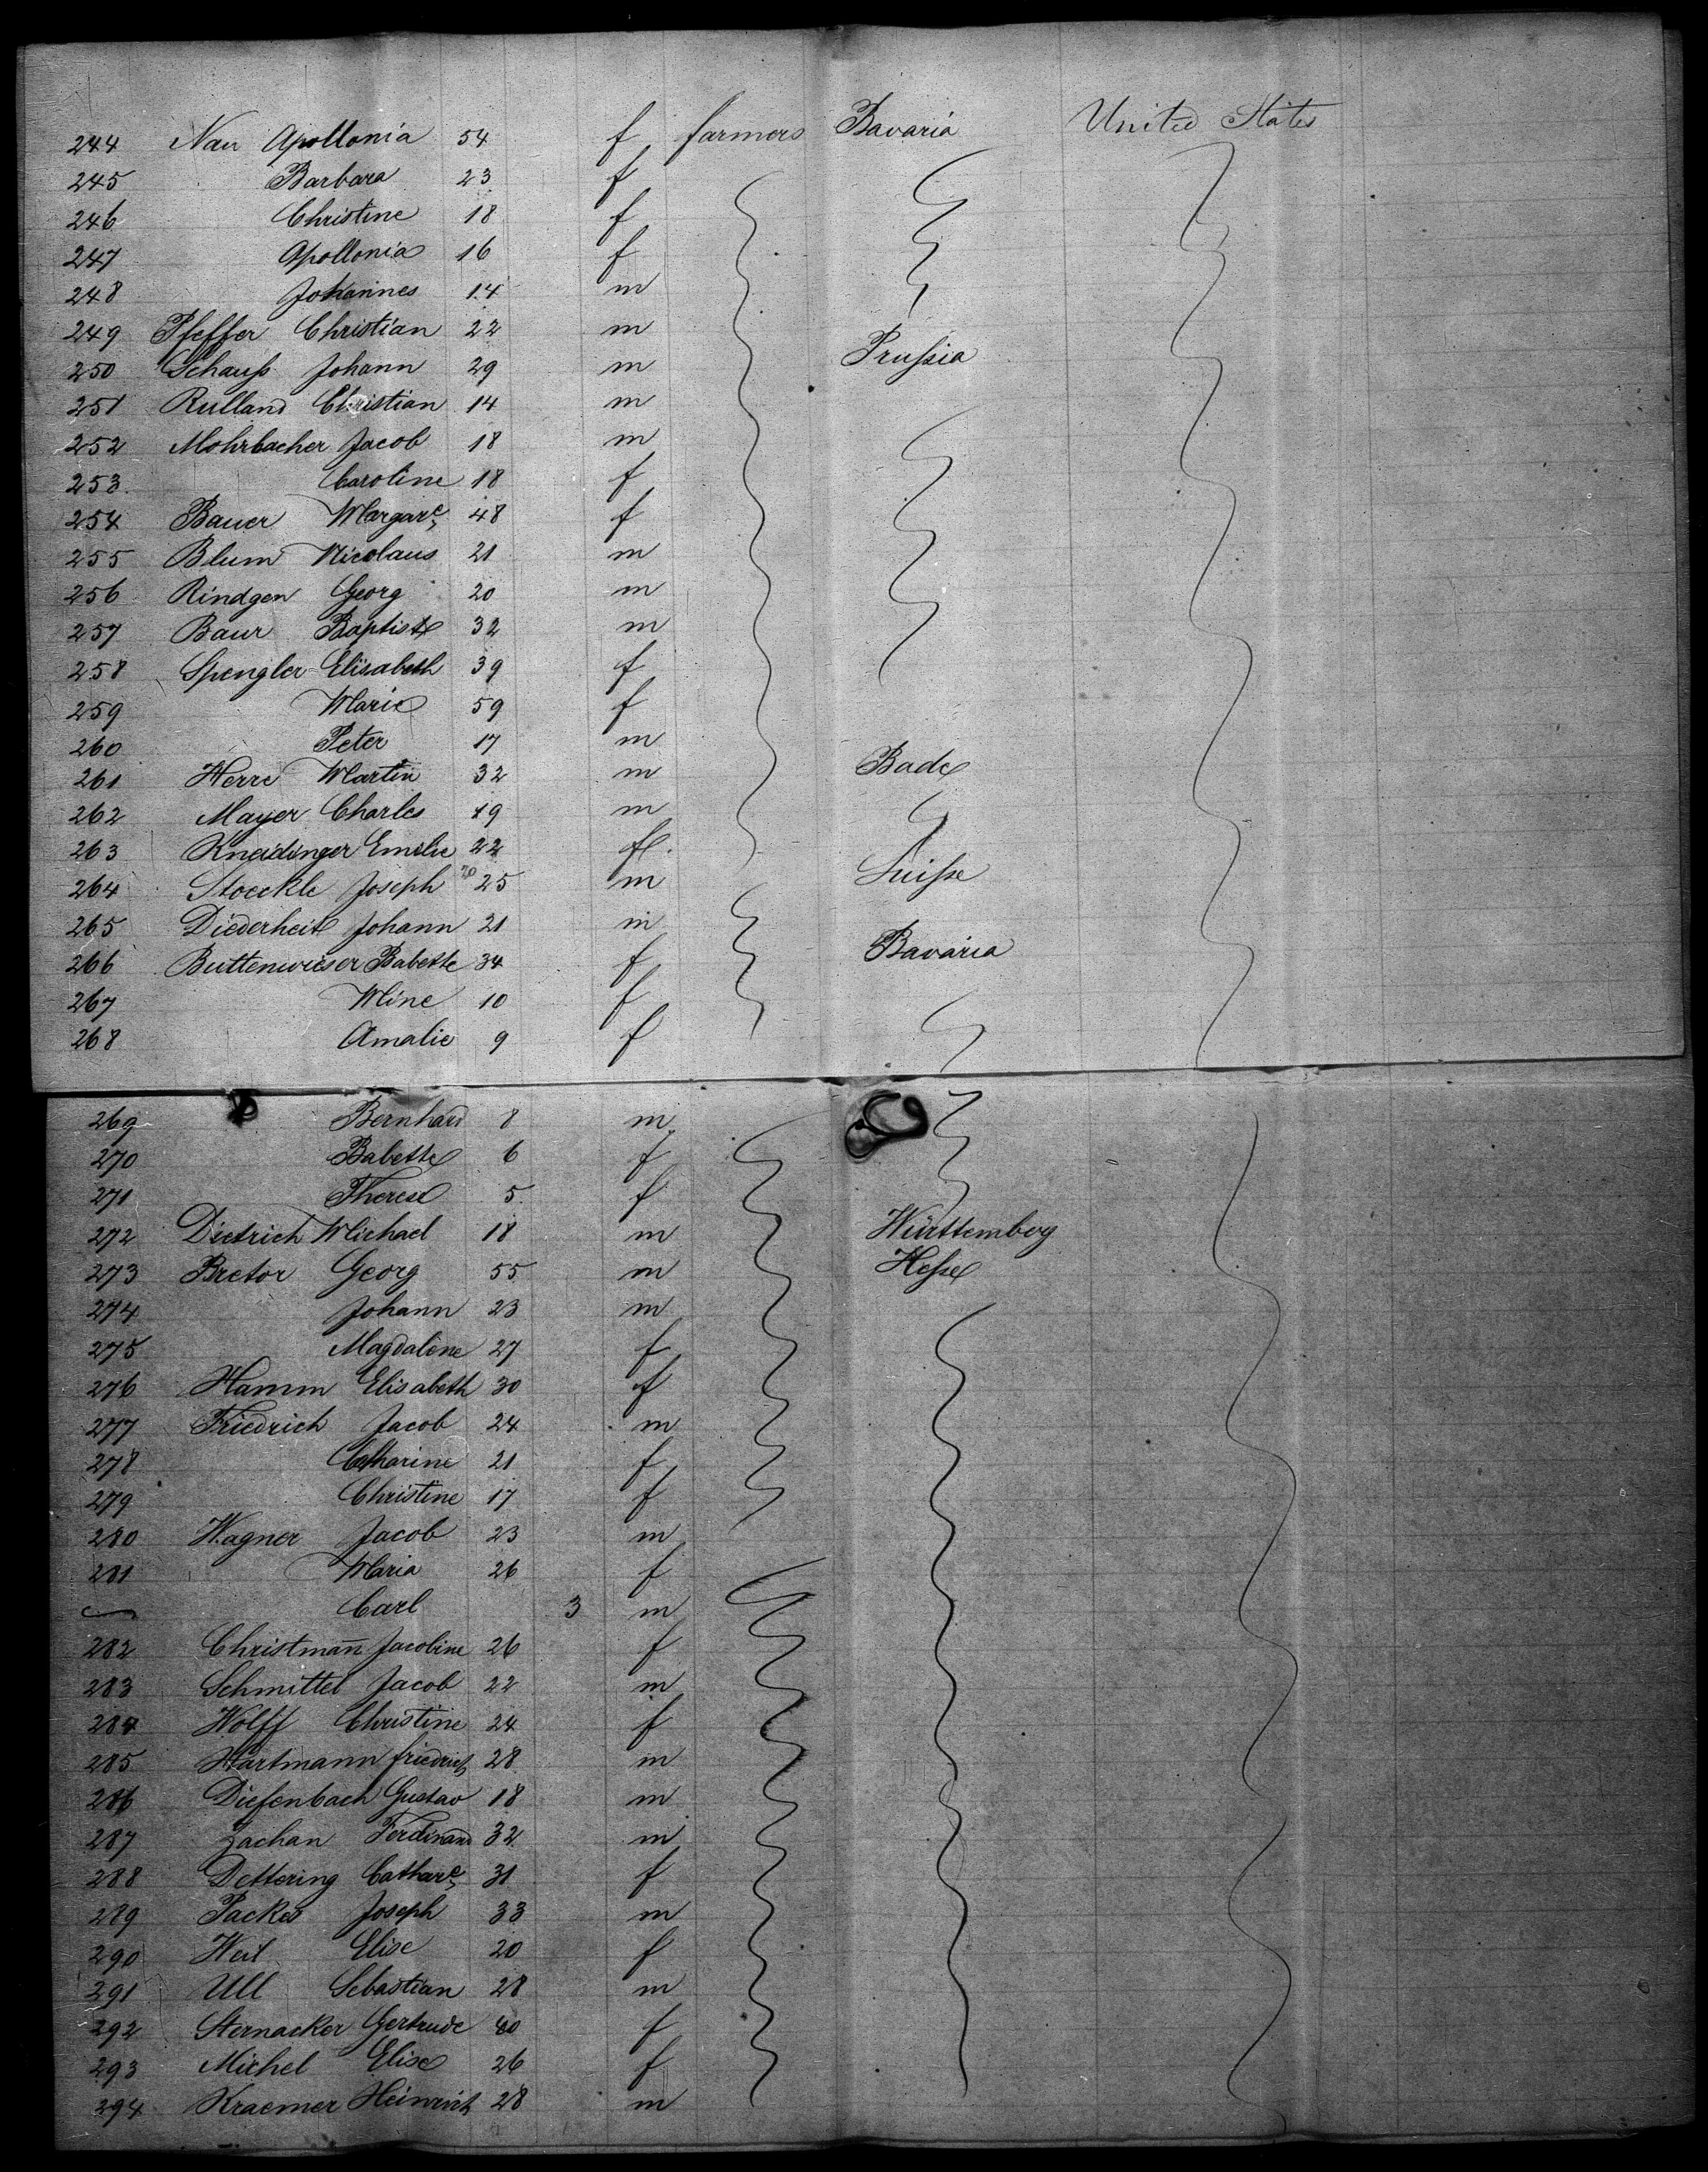 244 Nau Apollonia 54 f farmers Bavaria United States
245 Barbara 23 f
246 Christine 18 f
247 Apollonia 16 f
248 Johannes 14 m
249 Pfeffer Christian 22 m
250 Schauß Johann 29 m Prußia
251 Rulland Christian 14 m
252 Mohrbacher Jacob 18 m
253 Caroline 18 f
254 Bauer Margare 48 f
255 Blum Nicolaus 21 m
256 Rindgen Georg 20 m
257 Baur Baptiste 32 m
258 Spengler Elisabeth 39 f
259 Marie 59 f
260 Peter 17 m
261 Herre Martin 32 m Bade
262 Mayer Charles 19 m
263 Kneidinger Emilie 22 f
264 Stoeckle Joseph 25 m Suiße
265 Diederheit Johann 21 m
266 Buttenwieser Babette 34 f Bavaria
267 Mine 10 f
268 Amalie 9 f
269 Bernhard 8 m
270 Babette 6 f
271 Therese 5 f
272 Dietrich Michael 18 m Württemberg
273 Bretor Georg 55 m Heße
274 Johann 23 m
275 Magdalene 27 f
276 Hamm Elisabeth 30 f
277 Friedrich Jacob 24 m
278 Catharine 21 f
279 Christine 17 f
280 Wagner Jacob 23 m
281 Maria 26 f
Carl 3 m
282 Christmañ Jacobine 26 f
283 Schmittel Jacob 22 m
284 Wolff Christine 24 f
285 Hartmann friedrich 28 m
286 Diefenbach Gustav 18 m
287 Zachan Ferdinand 32 m
288 Dettering Cathare 31 f
289 Packes Joseph 33 m
290 Weil Elise 20 f
291 Ull Sebastian 28 m
292 Sternacker Gertrude f
293 Michel Elise 26 f
294 Kraemer Heinrich 28 m